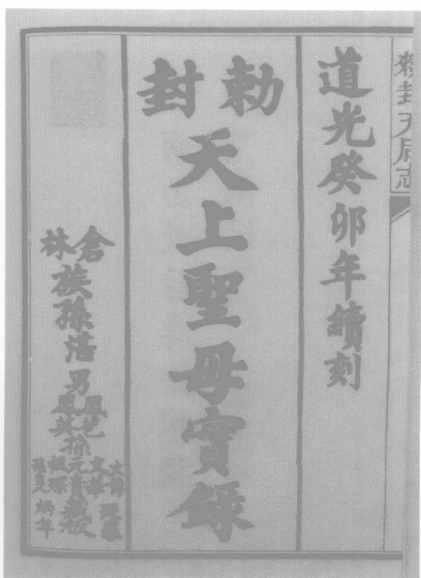 敕封天后志
道光癸卯年續刻
勅封
天上聖母實錄
倉林族孫清男鳳
孫